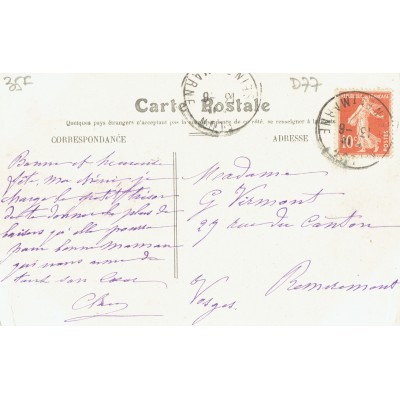 35F
D77
Carte Postale
Quelques pays étrangers n'acceptant pas la
se renseigner à la
CORRESPONDANCE
ADRESSE
Bonne et heureuse
fête, ma chérie, je
charge
de te donner le plus de
baisers qu'elle pourra
pour bonne maman
qui vous aime de
tout son cœur
Madame
G Viermont
27 rue du Canton
Remiremont
Vosges
10
POSTES